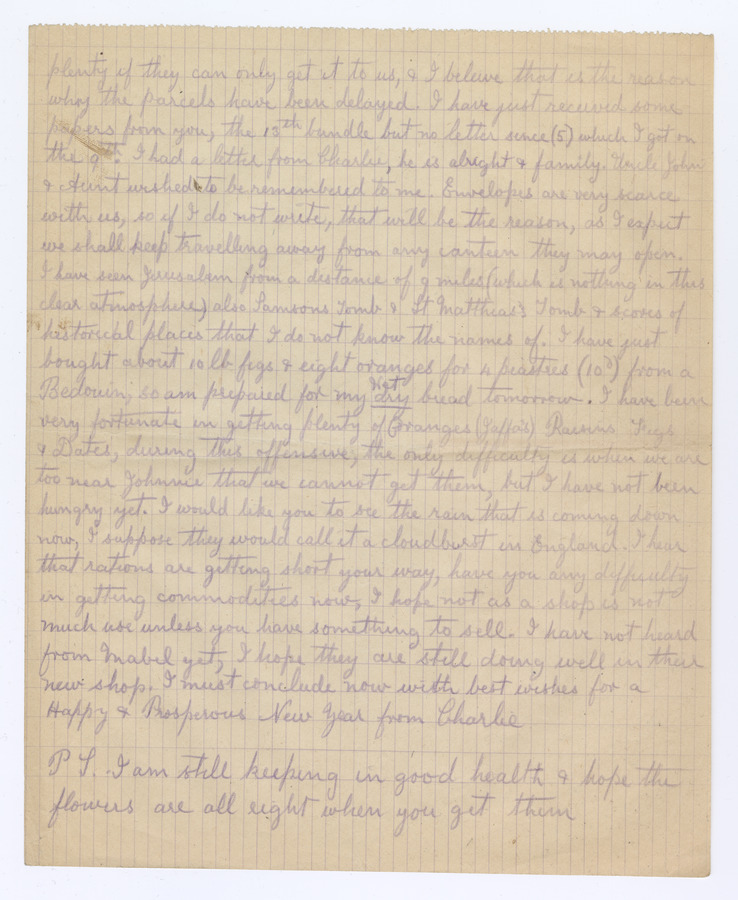 plenty if they can only get it to us, & I beleive that is the reason
why the parcels have been delayed. I have just received some
papers from you, the 13th bundle but no letter since (5) which I got on
the 9th. I had a letter from Charlie, he is alright & family. Uncle John
& Aunt wished to be remembered to me. Envelopes are very scarce
with us, so if I do not write, that will be the reason, as I expect
we shall keep travelling away from any canteen they may open.
I have seen Jerusalem from a distance of 9 miles (which is nothing in this
clear atmosphere) also Samsons Tomb & St Matthias's Tomb & scores of
historical places that I do not know the names of. I have just
bought about 10 lb figs & eight oranges for 4 piastres (10d) from a
Bedouin, so am prepared for my dry bread tomorrow. I have been
very fortunate in getting plenty of Oranges (Jaffa's) Raisins Figs
& Dates, during this offensive, the only difficulty is when we are
too near Johnnie that we cannot get them, but I have not been
hungry yet. I would like you to see the rain that is coming down
now, I suppose they would call it a cloudburst in England. I hear
that rations are getting short your way, have you any difficulty
in getting commodities now, I hope not as a shop is not
much use unless you have something to sell. I have not heard
from Mabel yet, I hope they are still doing well in their
new shop. I must conclude now with best wishes for a
Happy & Prosperous New Year from Charlie
P S. I am still keeping in good health & hope the
flowers are all right when you get them